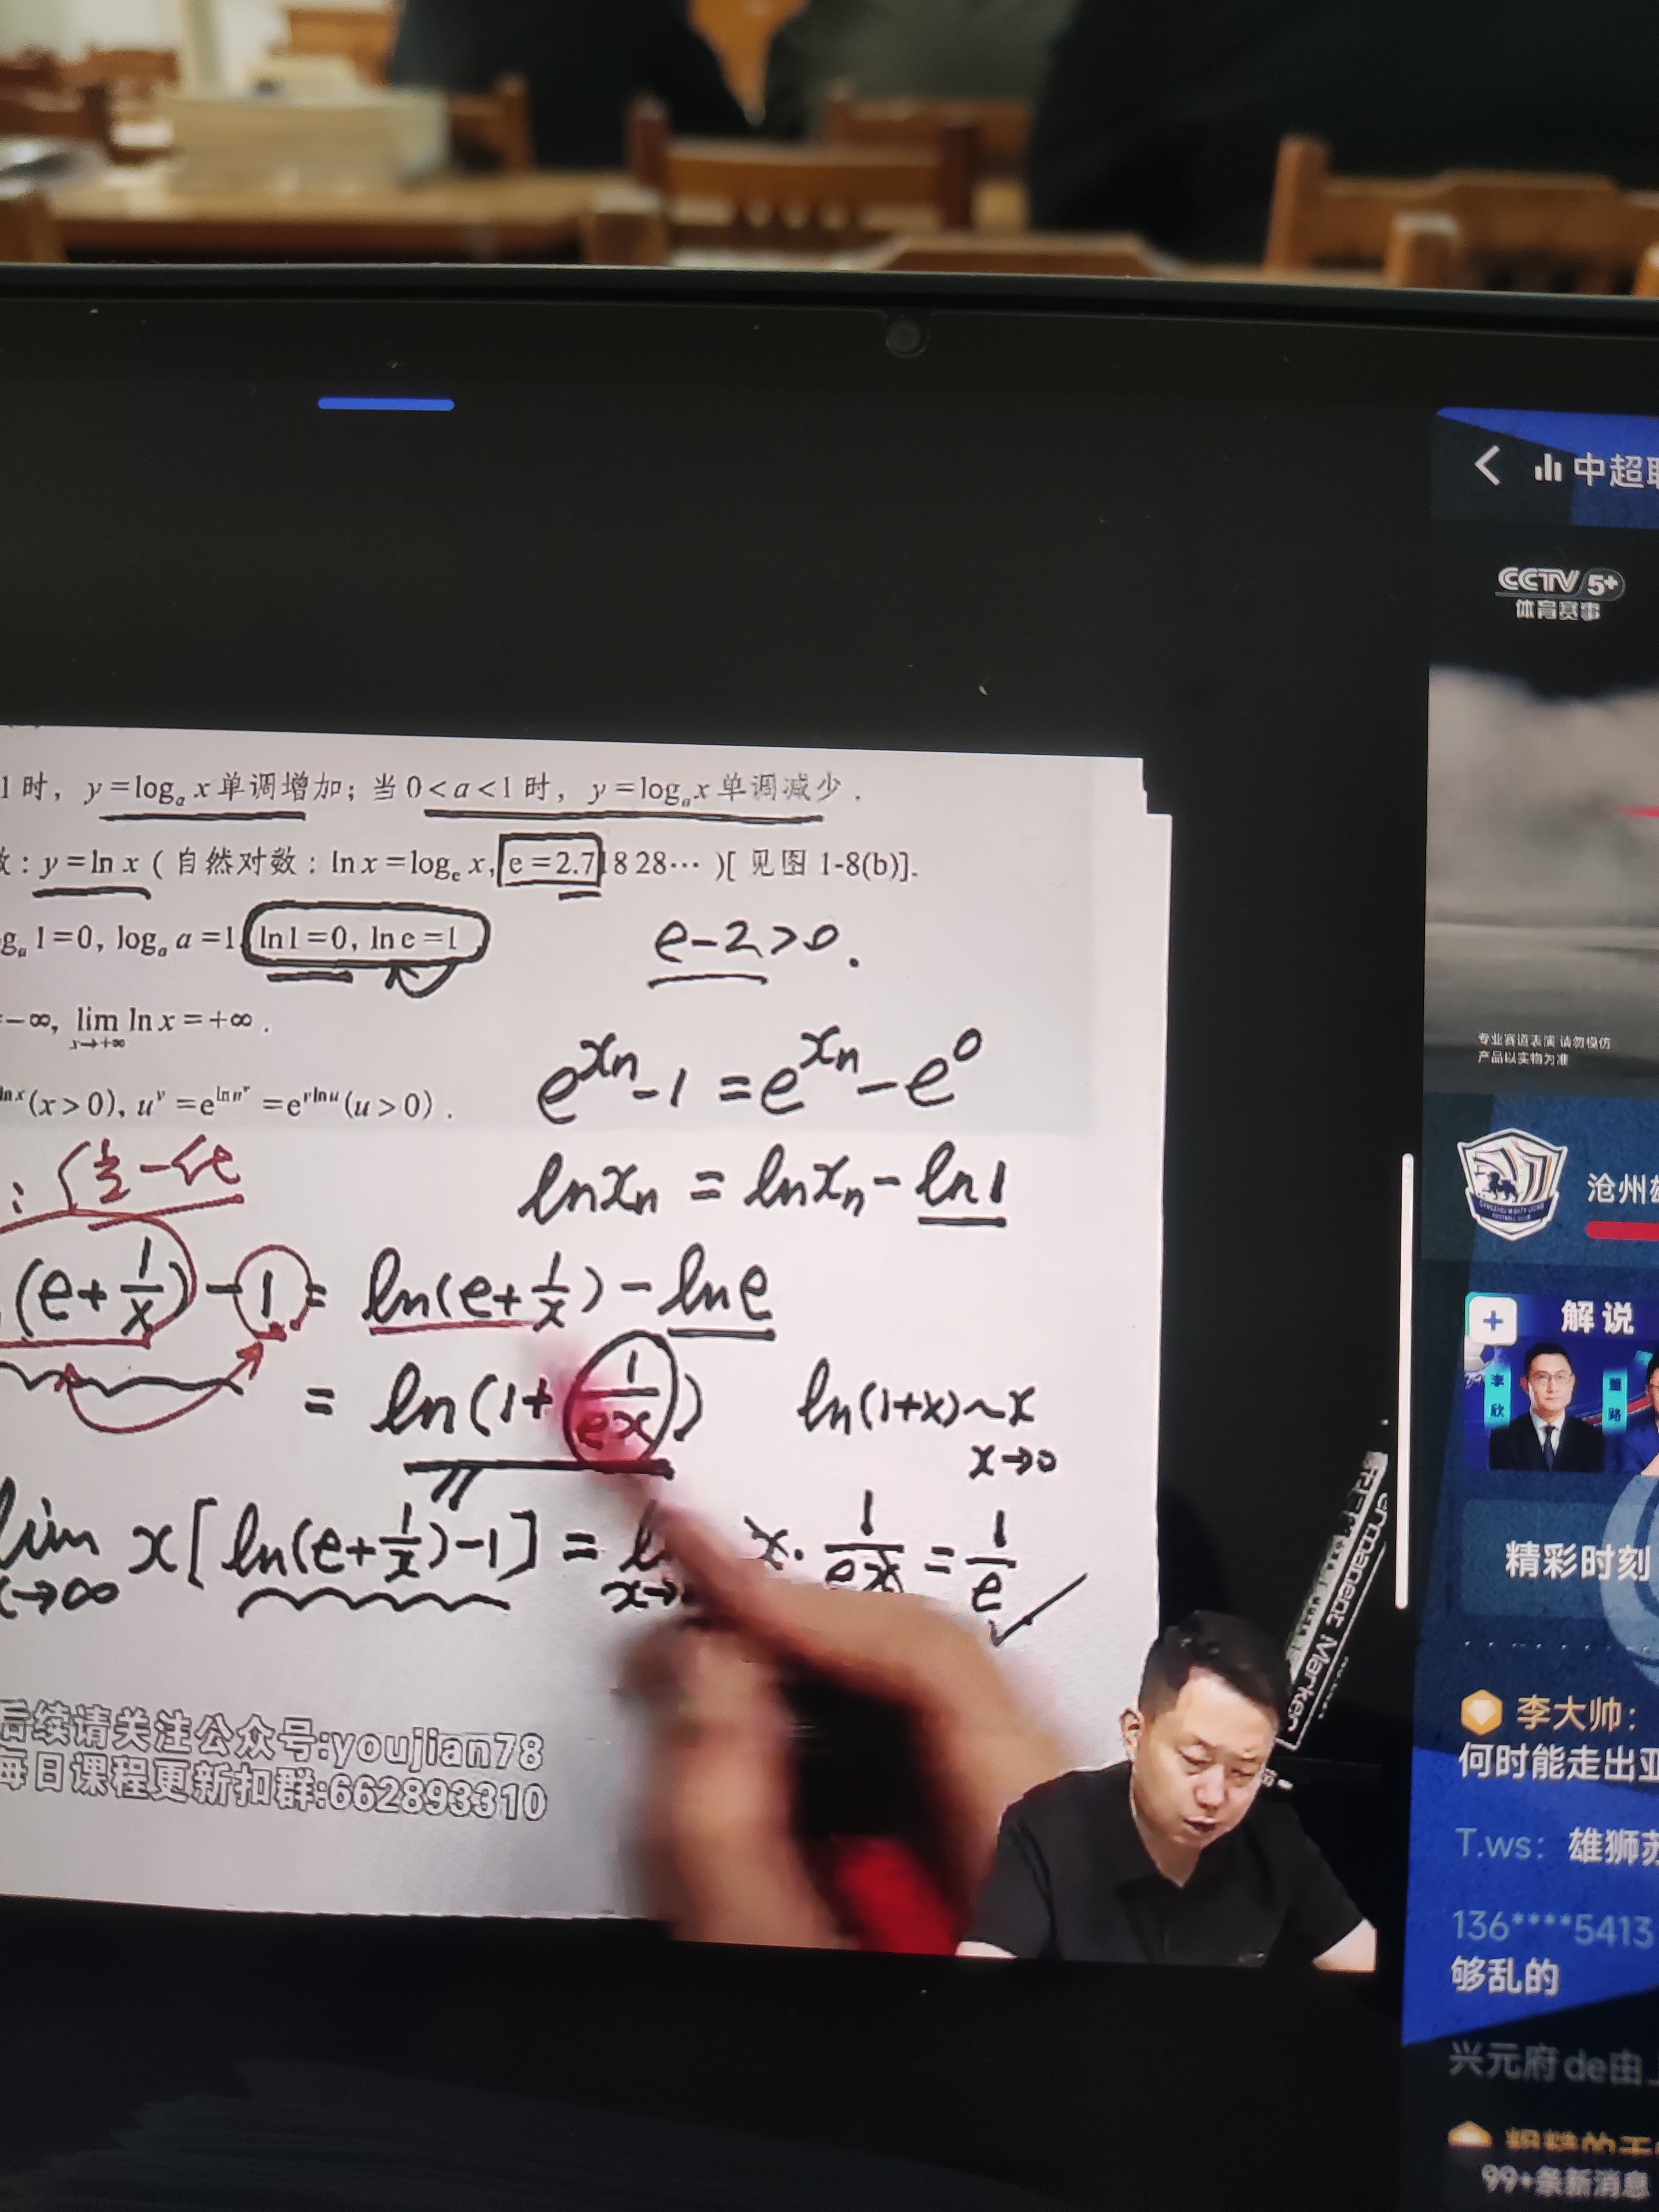 1时，y=logₐx单调增加；当0<a<1时，y=logₐx单调减少．
：y=ln x（自然对数：ln x=logₑx，e=2.71828…）[见图1-8(b)].
1=0, logₐa=1, ln1=0, ln e=1
e-2>0.
-∞, lim ln x=+∞.
x→+∞
(x>0), uᵛ=e^{ln uᵛ}=e^{vln u}(u>0).
e^{xn}-1=e^{xn}-e^0
ln xn = ln xn - ln 1
(e+1/x)-1= ln(e+1/x)-ln e
= ln(1+1/ex)
ln(1+x)~x
x→0
lim x[ln(e+1/x)-1] = x·1/ex = 1/e
x→∞
后续请关注公众号:youjian78
每日课程更新扣群:662893310
Permanent Marker
中超
CCTV 5+
体育赛事
专业赛道表演 请勿模仿
产品以实物为准
沧州
解说
李欣
精彩时刻
李大帅：
何时能走出亚
T.ws：雄狮
136****5413
够乱的
兴元府de由
99+条新消息